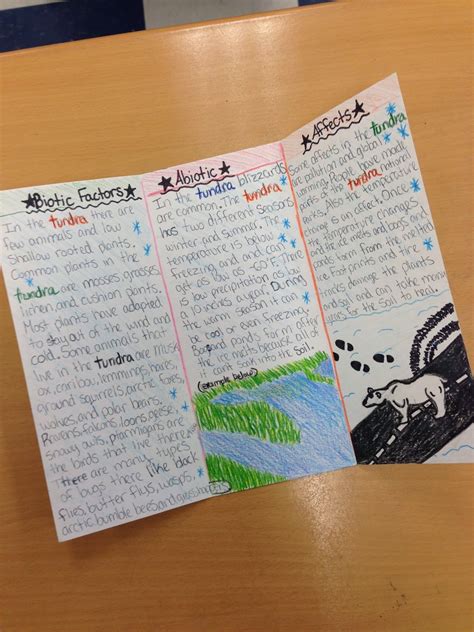 Biotic Factors
In the tundra there are
few animals and low
shallow rooted plants.
Common plants in the
tundra are mosses, grasses,
lichen, and cushion plants.
Most plants have adapted
to stay out of the wind and
cold. Some animals that
live in the tundra are musk
ox, caribou, lemmings, hares,
ground squirrels, arctic foxes,
wolves, and polar bears.
Ravens, falcons, loons, geese,
snowy owls, ptarmigans are
the birds that live there.
There are many types
of bugs there like black
flies, butter flies, wasps,
arctic bumble bees and
Abiotic
In the tundra blizzards
are common. The tundra
has two different seasons
winter and summer. The
temperature is below
freezing and can
get as low as -60°F. There
is low precipitation as low
a 10 inches a year. During
the warm season it can
be 50° or even freezing.
ponds form after
the ice melts because all
it can't soak into the soil.
(example below)
Affects
Some affects in the tundra
are pollution and global
warming. People have made
marks. Also the temperature
change is an affect. Once
the temperature changes
and the ice melts and
ponds form from the melted
ice. Foot prints and tire
tracks damage the plants
and soil and can take many
years for the soil to heal.